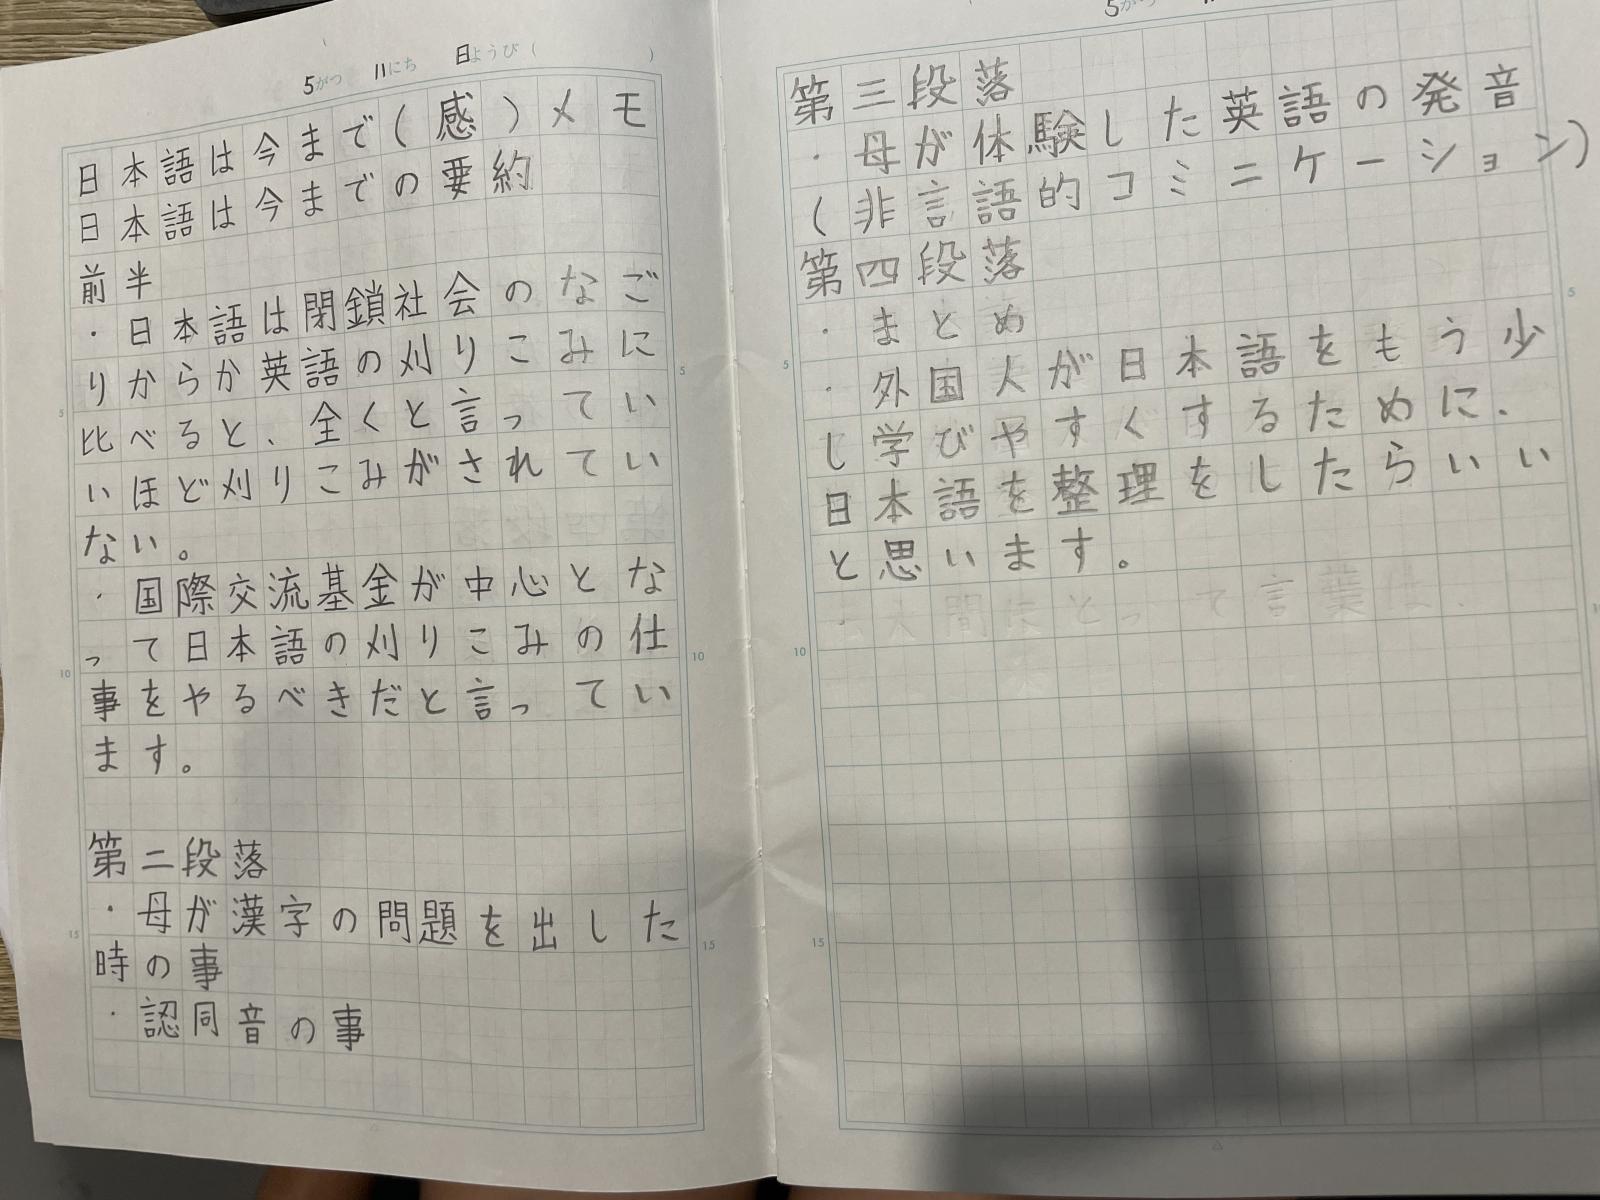 5がつ 11にち 日ようび( )
日本語は今まで(感)メモ
日本語は今までの要約
前半
・日本語は閉鎖社会のなご
りからか英語の刈りこみに
比べると、全くと言ってい
いほど刈りこみがされてい
ない。
・国際交流基金が中心とな
って日本語の刈りこみの仕
事をやるべきだと言ってい
ます。
第二段落
・母が漢字の問題を出した
時の事
・認同音の事
5
10
15
5
10
15
5がつ
第三段落
・母が体験した英語の発音
(非言語的コミニケーション)
第四段落
・まとめ
・外国人が日本語をもう少
し学びやすくするために、
日本語を整理をしたらいい
と思います。
5
10
15
5